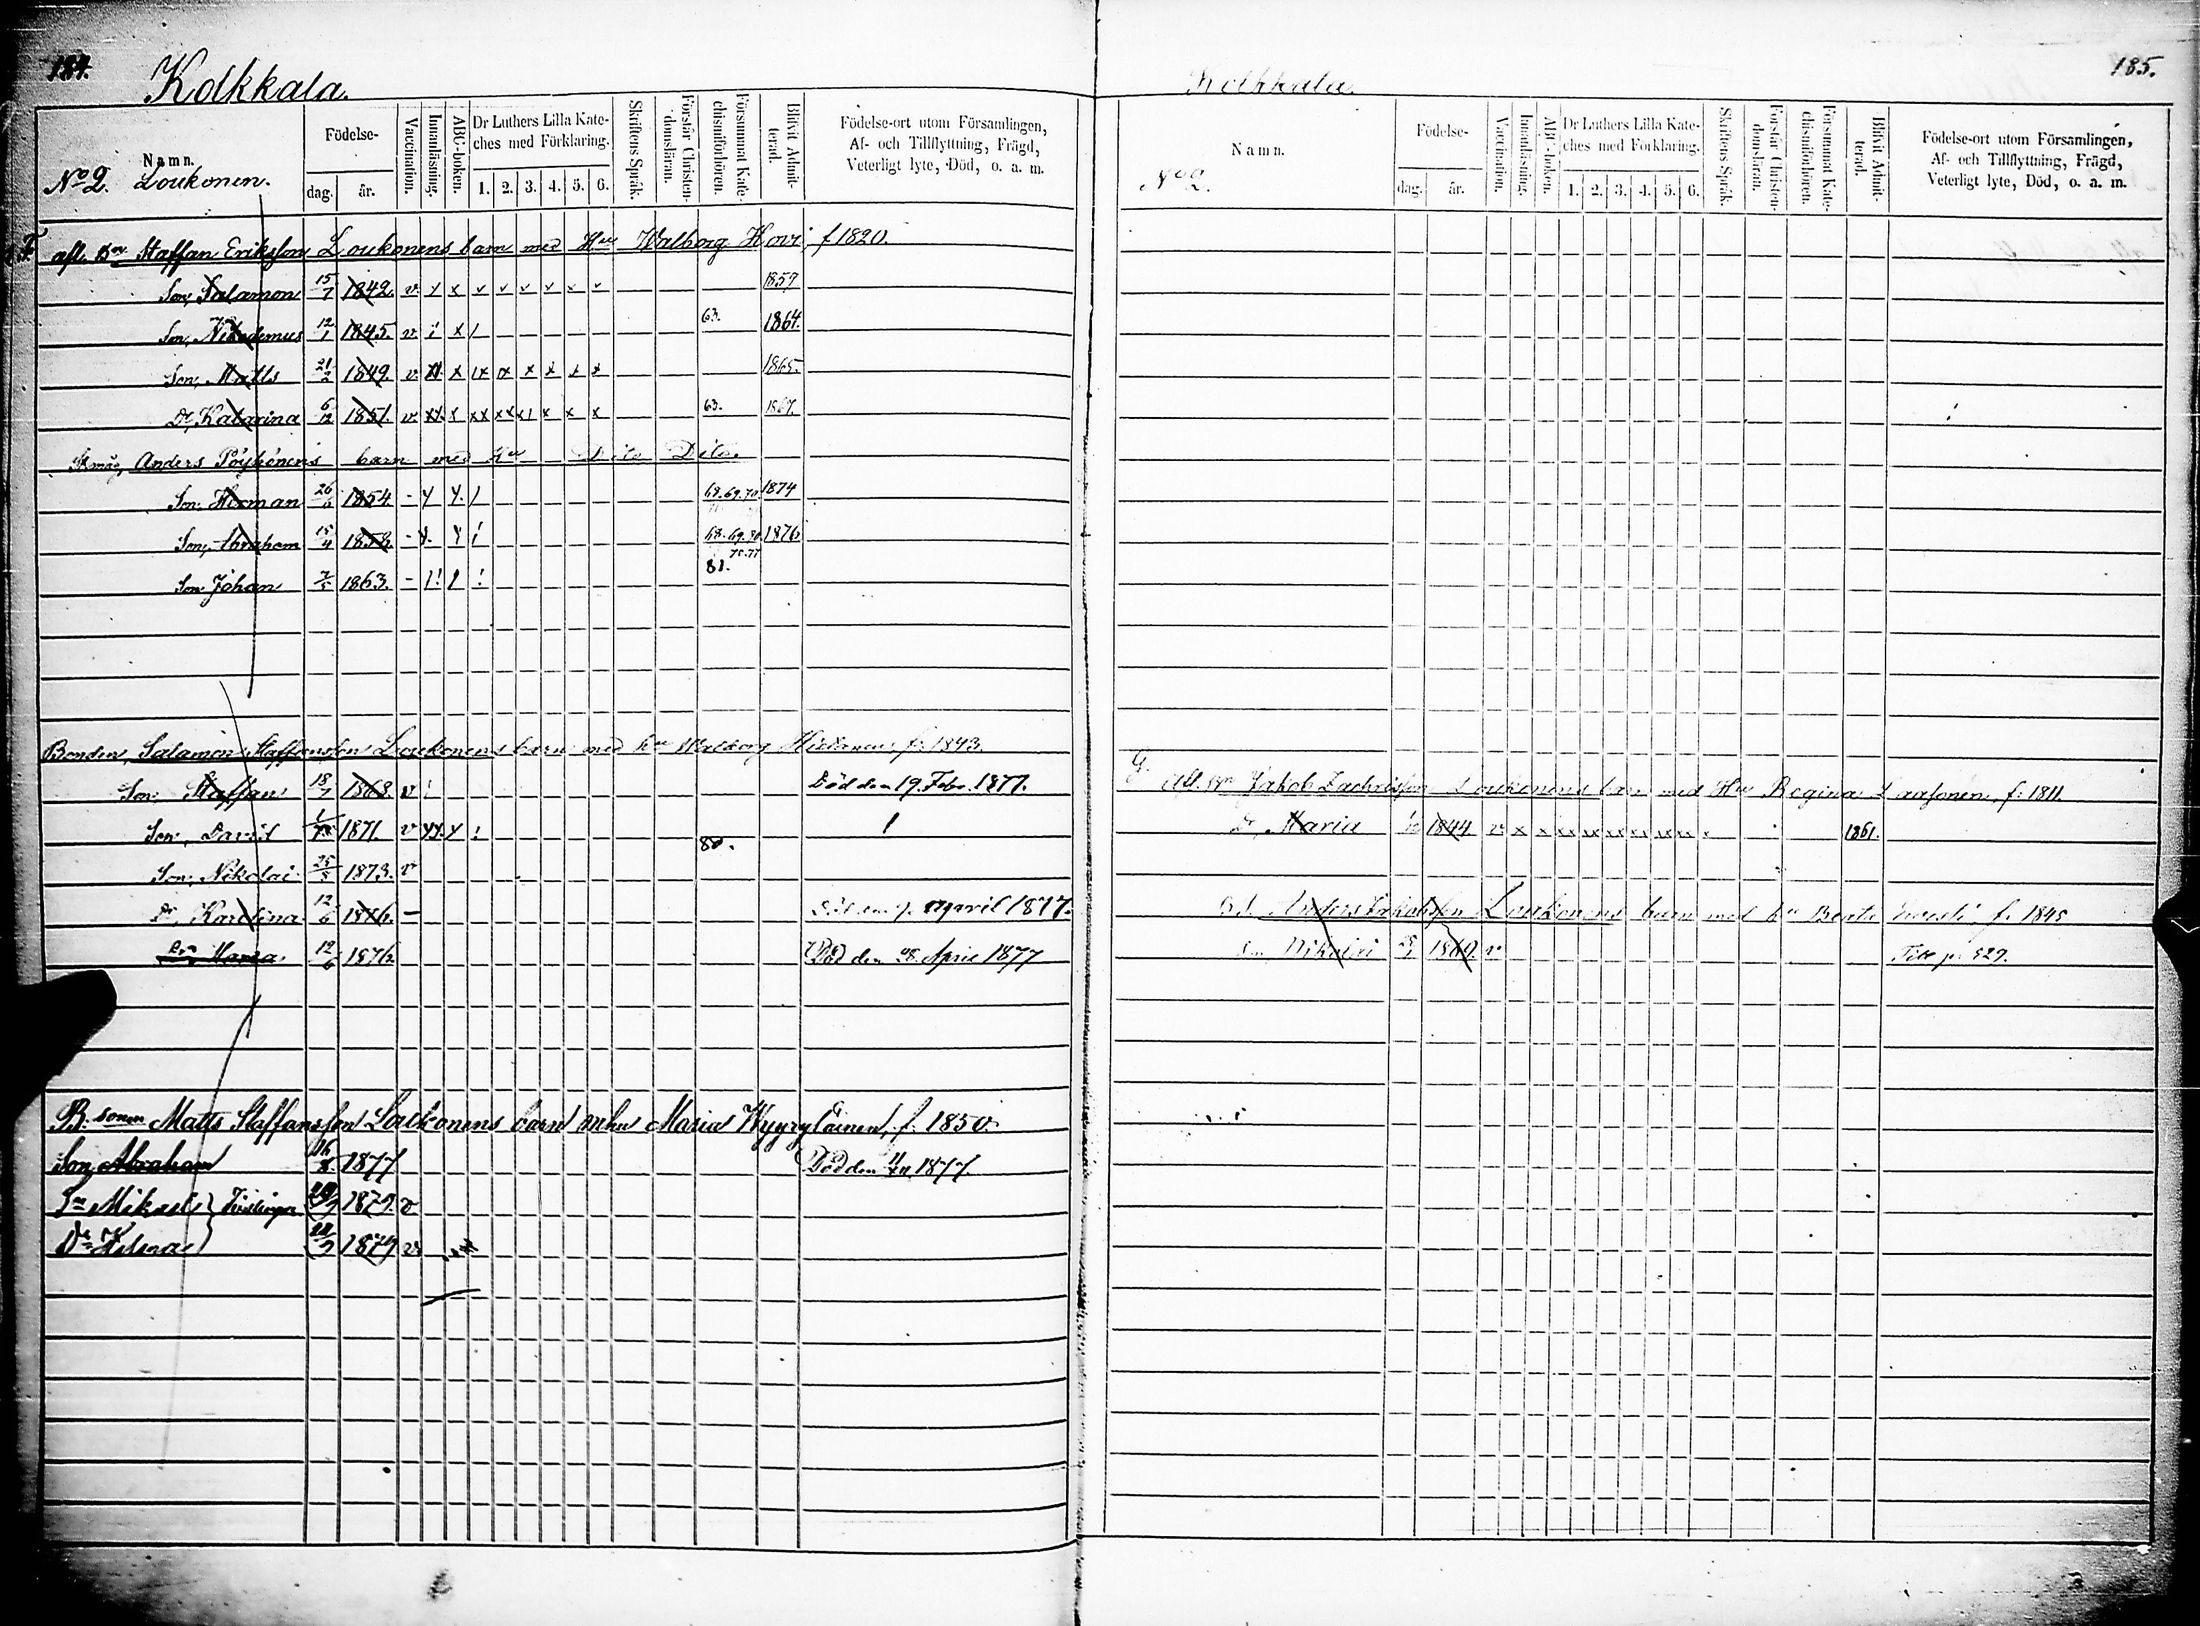 184.
Kolkkala.
Namn.
No 2. Loukonen.
Födelse-
dag. år.
Vaccination.
Innanläsning.
ABC-boken.
Dr Luthers Lilla Kate-
ches med Förklaring.
1. 2. 3. 4. 5. 6.
Skriftens Språk.
Förstår Christen-
domsläran.
Försummat Kate-
chismiförhören.
Blifvit Admit-
terad.
Födelse-ort utom Församlingen,
Af- och Tillflyttning, Frägd,
Veterligt lyte, Död, o. a. m.
F. afl. Bn Staffan Eriksson Loukonens barn med Hu Walborg Hovi f 1820.
Son, Salamon 15/7 1842. v. 1859
Son, Nikodemus 12/1 1845. v. 63. 1864.
Son, Matts 21/2 1849. v. 1865.
Dr, Katarina 6/12 1851. v. 63. 1867.
Anders Pöyhönens barn med Hu Dito Dito.
Son, Herman 26 1854. - 68.69.70. 1874
Son, Abraham 15/4 1858. - 68.69.70. 1876
75.77
Son Johan 7/5 1863. - 81.
Bonden, Salamon Staffansson Loukonens barn med hu Walborg f. 1843.
Son, Staffan 18/7 1868. v Död den 19. Febr. 1877.
Son, David 1871. v 80.
Son, Nikolai 25/8 1873. v
Dr, Karolina 12/6 1876. - April 1877.
Dr Maria 12/6 1876. Död den 28. April 1877
B: sonen Matts Staffansson Loukonens barn m hu Maria Wyyryläinen, f. 1850.
Son Abraham 16/8 1877 Död den 11/11 1877.
Sn Mikael } Tvillingar 1879. v
Dr Hilma 1879 v
185.
Kolkkala.
Namn.
No 2.
Födelse-
dag. år.
Vaccination.
Innanläsning.
ABC-boken.
Dr Luthers Lilla Kate-
ches med Förklaring.
1. 2. 3. 4. 5. 6.
Skriftens Språk.
Förstår Christen-
domsläran.
Försummat Kate-
chismiförhören.
Blifvit Admit-
terad.
Födelse-ort utom Församlingen,
Af- och Tillflyttning, Frägd,
Veterligt lyte, Död, o. a. m.
G. Afl. Bn Jakob Zachrisson Loukonens barn med Hu Regina Laasonen, f. 1811.
Dr, Maria 1844 v 1861.
Anders Jakobsson Loukonens barn med hu f. 1845
Sn Nikolai 1869. v Till p. 529.